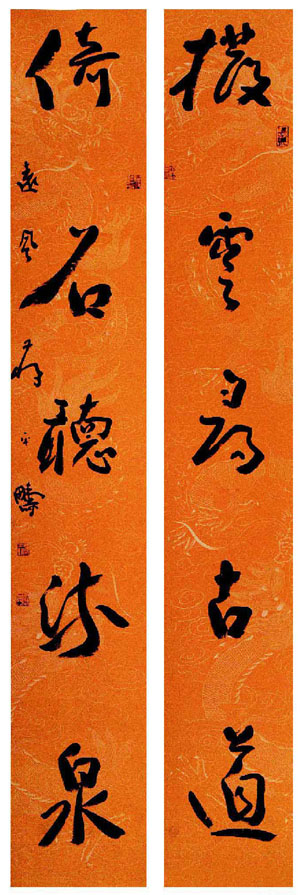 撥雲尋古道
倚石聽流泉